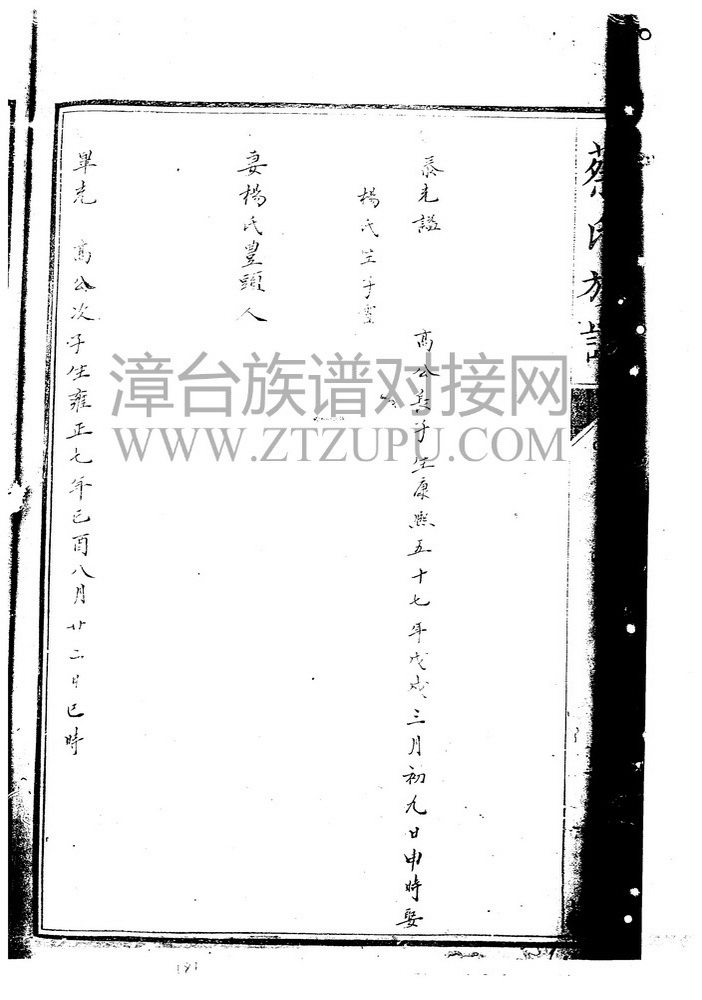 蔡氏族譜
泰光諡 高公長子生康熙五十七年戊戌三月初九日申時娶
楊氏生子雲
妻楊氏豐頭人
畢光 高公次子生雍正七年己酉八月廿二日巳時
漳台族谱对接网
WWW.ZTZUPU.COM